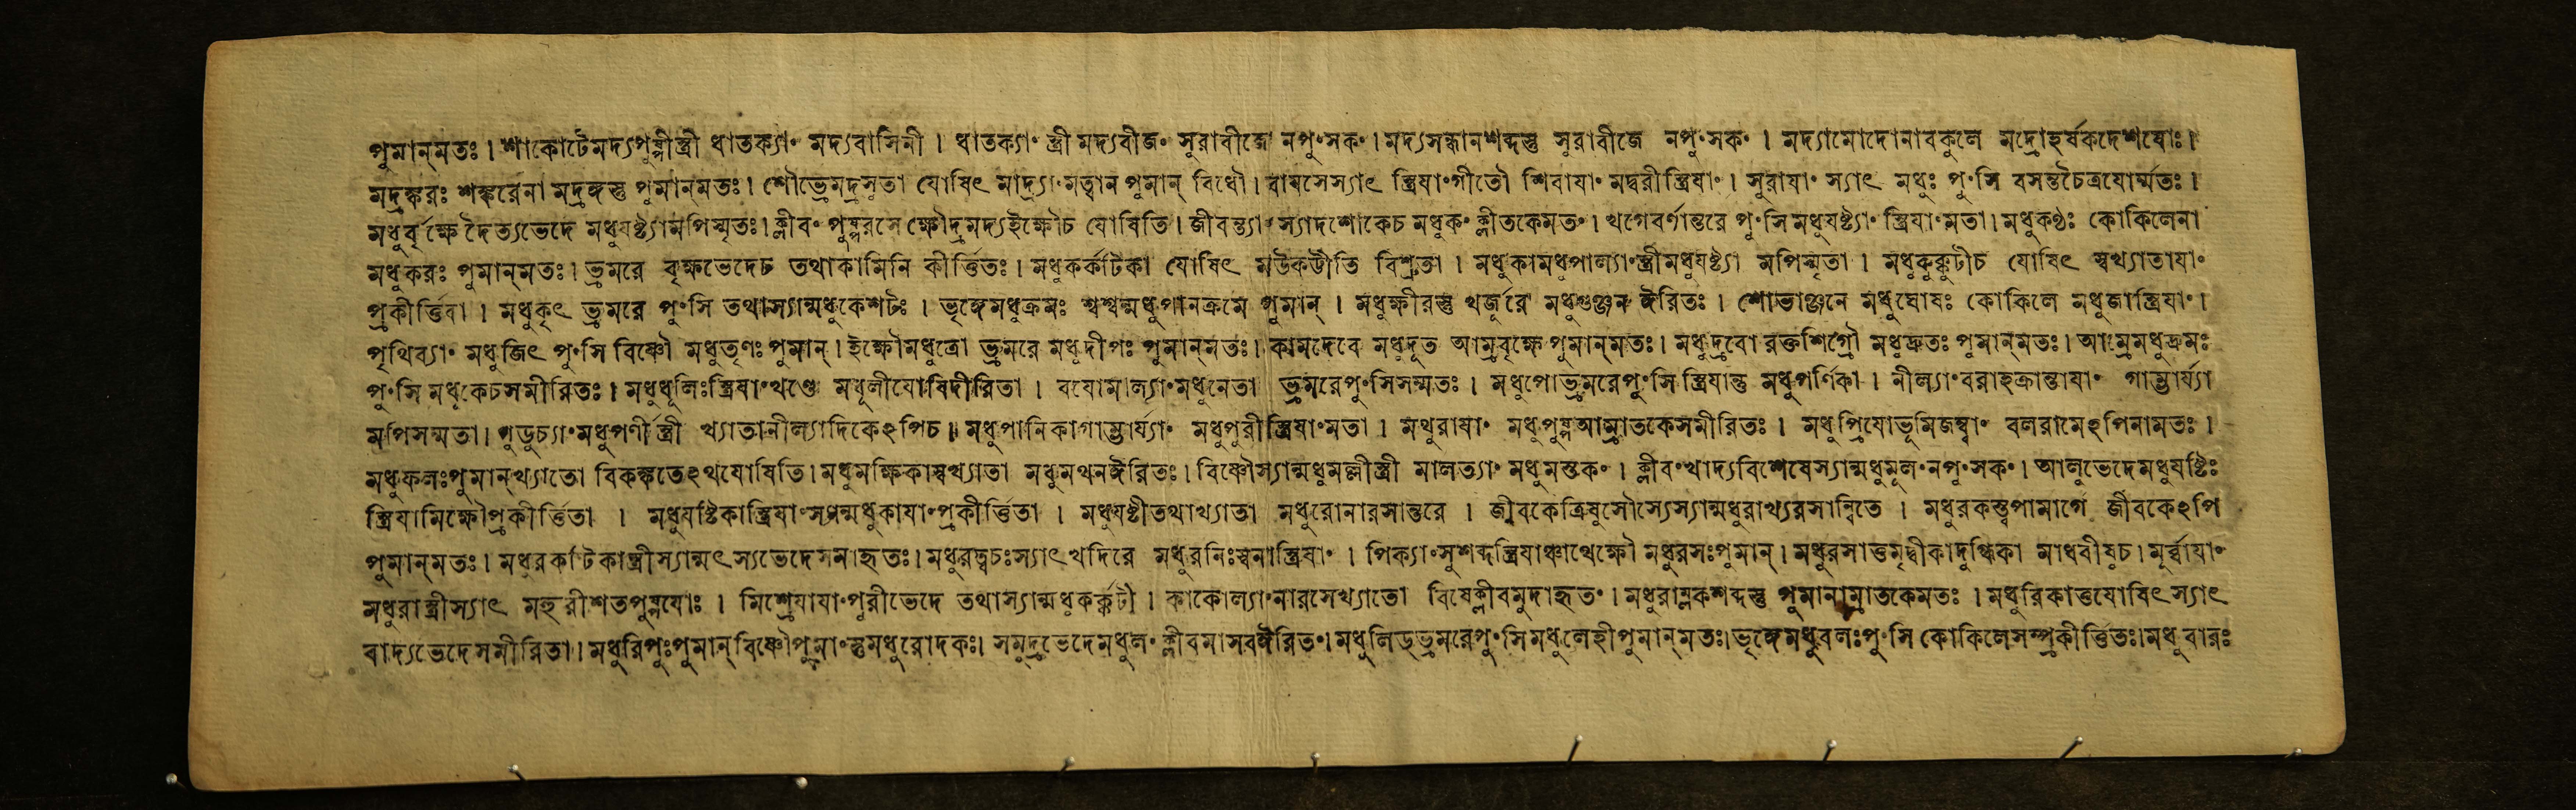 পুমান্মতঃ। শাকোটেমদ্যপুষ্পীস্ত্রী ধাতক্যাং মদ্যবাসিনী । ধাতক্যাং স্ত্রী মদ্যবীজং সুরাবীজে নপুংসকং। মদ্যসন্ধানশব্দস্তু সুরাবীজে নপুংসকং । মদ্যামোদোনাবকুলে মদ্রোহর্ষকদেশযোঃ।
মদ্রঙ্করঃ শঙ্করেনা মদ্রঙ্গস্তু পুমান্মতঃ। শৌভ্রেমদ্রসুতা যোষিৎ মাদ্র্যাং মত্বান পুমান্ বিধৌ। বাযসেস্যাৎ স্ত্রিযাং গীতৌ শিবাযাং মদ্বরীস্ত্রিযাং । সুরাযাং স্যাৎ মধুঃ পুংসি বসন্তচৈত্রযোর্ম্মতঃ।
মধুবৃক্ষে দৈত্যভেদে মধুযষ্ট্যামপিস্মৃতঃ। ক্লীবং পুষ্পরসে ক্ষৌদ্রমদ্যইক্ষৌচ যোষিতি। জীবন্ত্যাং স্যাদশোকেচ মধুকং ক্লীতকেমতং। খগেবর্ণান্তরে পুংসি মধুযষ্ট্যাং স্ত্রিযাং মতা। মধুকণ্ঠঃ কোকিলেনা
মধুকরঃ পুমান্মতঃ। ভ্রমরে বৃক্ষভেদেচ তথাকামিনি কীর্ত্তিতঃ। মধুকর্কটিকা যোষিৎ মউকডীতি বিশ্রুতা । মধুকামধুপাল্যাংস্ত্রীমধুযষ্ট্যা মপিস্মৃতা । মধুকুক্কুটীচ যোষিৎ স্বখ্যাতাযাং
প্রকীর্ত্তিতা । মধুকৃৎ ভ্রমরে পুংসি তথাস্যান্মধুকেশটঃ । ভৃঙ্গেমধুক্রমঃ শ্বশ্বন্মধুপানক্রমে পুমান্ । মধুক্ষীরস্তু খর্জূরে মধুগুঞ্জন ঈরিতঃ । শোভাঞ্জনে মধুঘোষঃ কোকিলে মধুজাস্ত্রিযাং।
পৃথিব্যাং মধুজিৎ পুংসি বিষ্ণৌ মধুতৃণঃ পুমান্। ইক্ষৌমধুত্রো ভ্রমরে মধুদীপঃ পুমান্মতঃ। কামদেবে মধুদূত আম্রবৃক্ষেপুমান্মতঃ। মধুদ্রবো রক্তশিগ্রৌ মধুদ্রুতঃ পুমান্মতঃ। আম্রেমধুদ্রুমঃ
পুংসি মধুকেচসমীরিতঃ। মধুধূলিঃস্ত্রিযাং খণ্ডে মধূলীযোষিদীরিতা । বযোমাল্যাং মধুনেতা ভ্রমরেপুংসিসম্মতঃ। মধুপোভ্রমরেপুংসি স্ত্রিযান্তু মধুপর্ণিকা । নীল্যাং বরাহক্রান্তাযাং গাম্ভার্য্যা
মপিসম্মতা। গুডুচ্যাং মধুপর্ণী স্ত্রী খ্যাতানীল্যাদিকেঽপিচ॥ মধুপানিকাগাম্ভার্য্যাং মধুপুরীস্ত্রিযাং মতা । মথুরাযাং মধুপুষ্পআম্রাতকেসমীরিতঃ । মধুপ্রিযোভূমিজম্ব্বাং বলরামেঽপিনামতঃ ।
মধুফলঃপুমান্খ্যাতো বিকঙ্কতেঽথযোষিতি। মধুমক্ষিকাস্বখ্যাতা মধুমথনঈরিতঃ। বিষ্ণৌস্যান্মধুমল্লীস্ত্রী মালত্যাং মধুমস্তকং । ক্লীবং খাদ্যবিশেষেস্যান্মধুমূলং নপুংসকং। আলুভেদেমধুযষ্টিঃ
স্ত্রিযামিক্ষৌপ্রকীর্ত্তিতা । মধুযষ্টিকাস্ত্রিযাং স্যান্মধুকাযাং প্রকীর্ত্তিতা । মধুযষ্টীতথাখ্যাতা মধুরোনারসান্তরে । জীবকেত্রিষুসৌস্যেস্যান্মধুরাখ্যরসান্বিতে । মধুরকস্ত্বপামার্গে জীবকেঽপি
পুমান্মতঃ। মধুরকটিকাস্ত্রীস্যান্মৎস্যভেদেসমাহৃতঃ। মধুরত্বচঃস্যাৎ খদিরে মধুরনিঃস্বনাস্ত্রিযাং । পিক্যাং সুশব্দস্ত্রিযাঞ্চাথেক্ষৌ মধুরসঃপুমান্। মধুরসাতুমৃদ্বীকাদুগ্ধিকা মাধবীষুচ। মূর্ব্বাযাং
মধুরাস্ত্রীস্যাৎ মহুরীশতপুষ্পযোঃ । মিশ্রেযাযাং পুরীভেদে তথাস্যান্মধুকর্ক্কটী । কাকোল্যাং নারসেখ্যাতো বিষেক্লীবমুদাহৃতং। মধুরাম্লকশব্দস্তু পুমানাম্রাতকেমতঃ । মধুরিকাতুযোষিৎস্যাৎ
বাদ্যভেদেসমীরিতা। মধুরিপুঃপুমান্বিষ্ণৌপুমাংস্তুমধুরোদকঃ। সমুদ্রভেদেমধুলং ক্লীবমাসবঈরিতং। মধুলিড্ভ্রমরেপুংসিমধুলেহীপুমান্মতঃ। ভৃঙ্গেমধুবলঃপুংসি কোকিলেসম্প্রকীর্ত্তিতঃ। মধুবারঃ